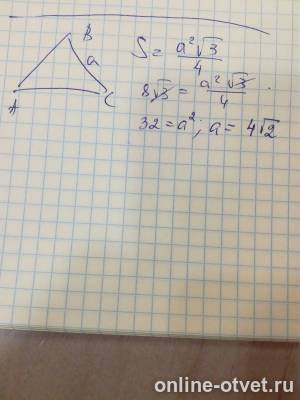 B
a
A
C
S = a²√3/4
8√3 = a²√3/4
32 = a²; a = 4√2
online-otvet.ru